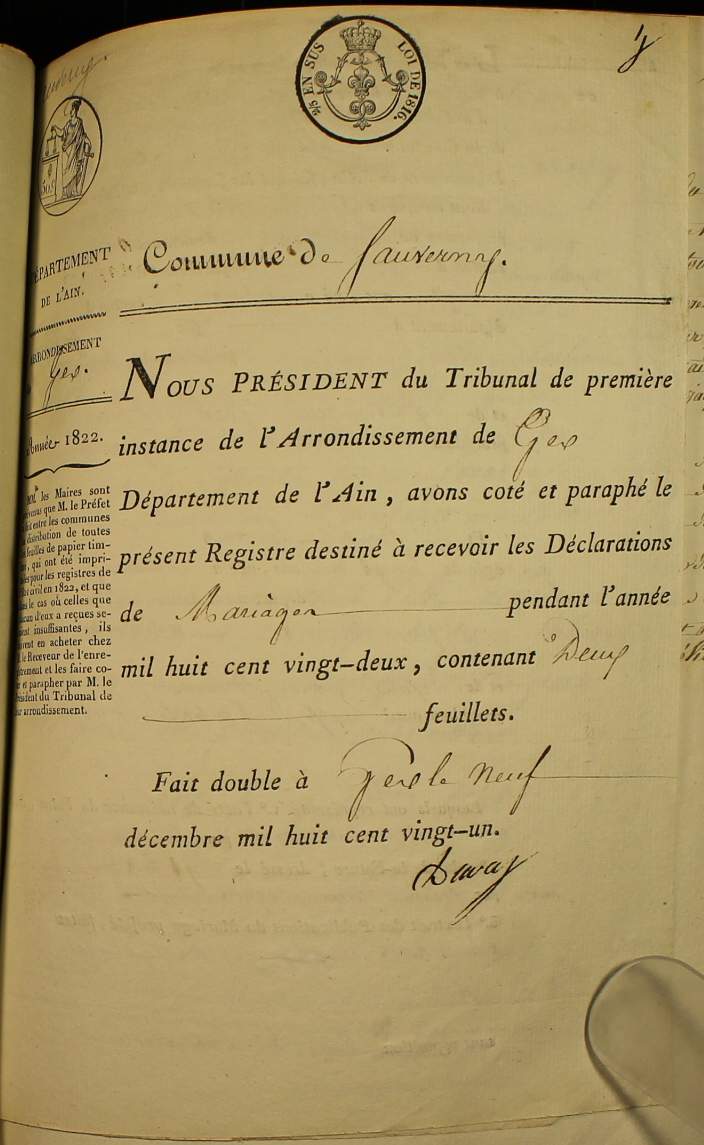 2/5 EN SUS LOI DE 1816.
DÉPARTEMENT
DE L'AIN.
ARRONDISSEMENT
Gex.
Année 1822.
MM. les Maires sont
prévenus que M. le Préfet
fait entre les communes
distribution de toutes
feuilles de papier tim-
qui ont été impri-
mées pour les registres de
civil en 1822, et que
le cas où celles que
chacun d'eux a reçues se-
raient insuffisantes, ils
en acheter chez
le Receveur de l'enre-
gistrement et les faire co-
ter et parapher par M. le
Président du Tribunal de
arrondissement.
Commune de Sauverny.
NOUS PRÉSIDENT du Tribunal de première
instance de l'Arrondissement de Gex
Département de l'Ain, avons coté et paraphé le
présent Registre destiné à recevoir les Déclarations
de Mariages pendant l'année
mil huit cent vingt-deux, contenant Deux
feuillets.
Fait double à Gex le neuf
décembre mil huit cent vingt-un.